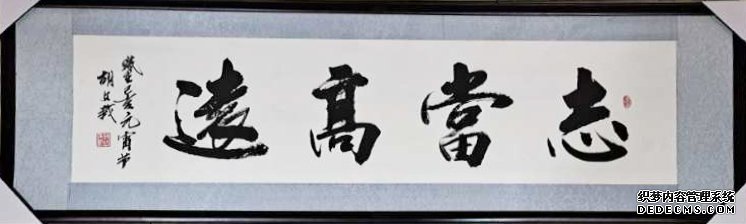 志當高遠
元宵节
胡
织梦内容管理系统
DEDECMS.COM